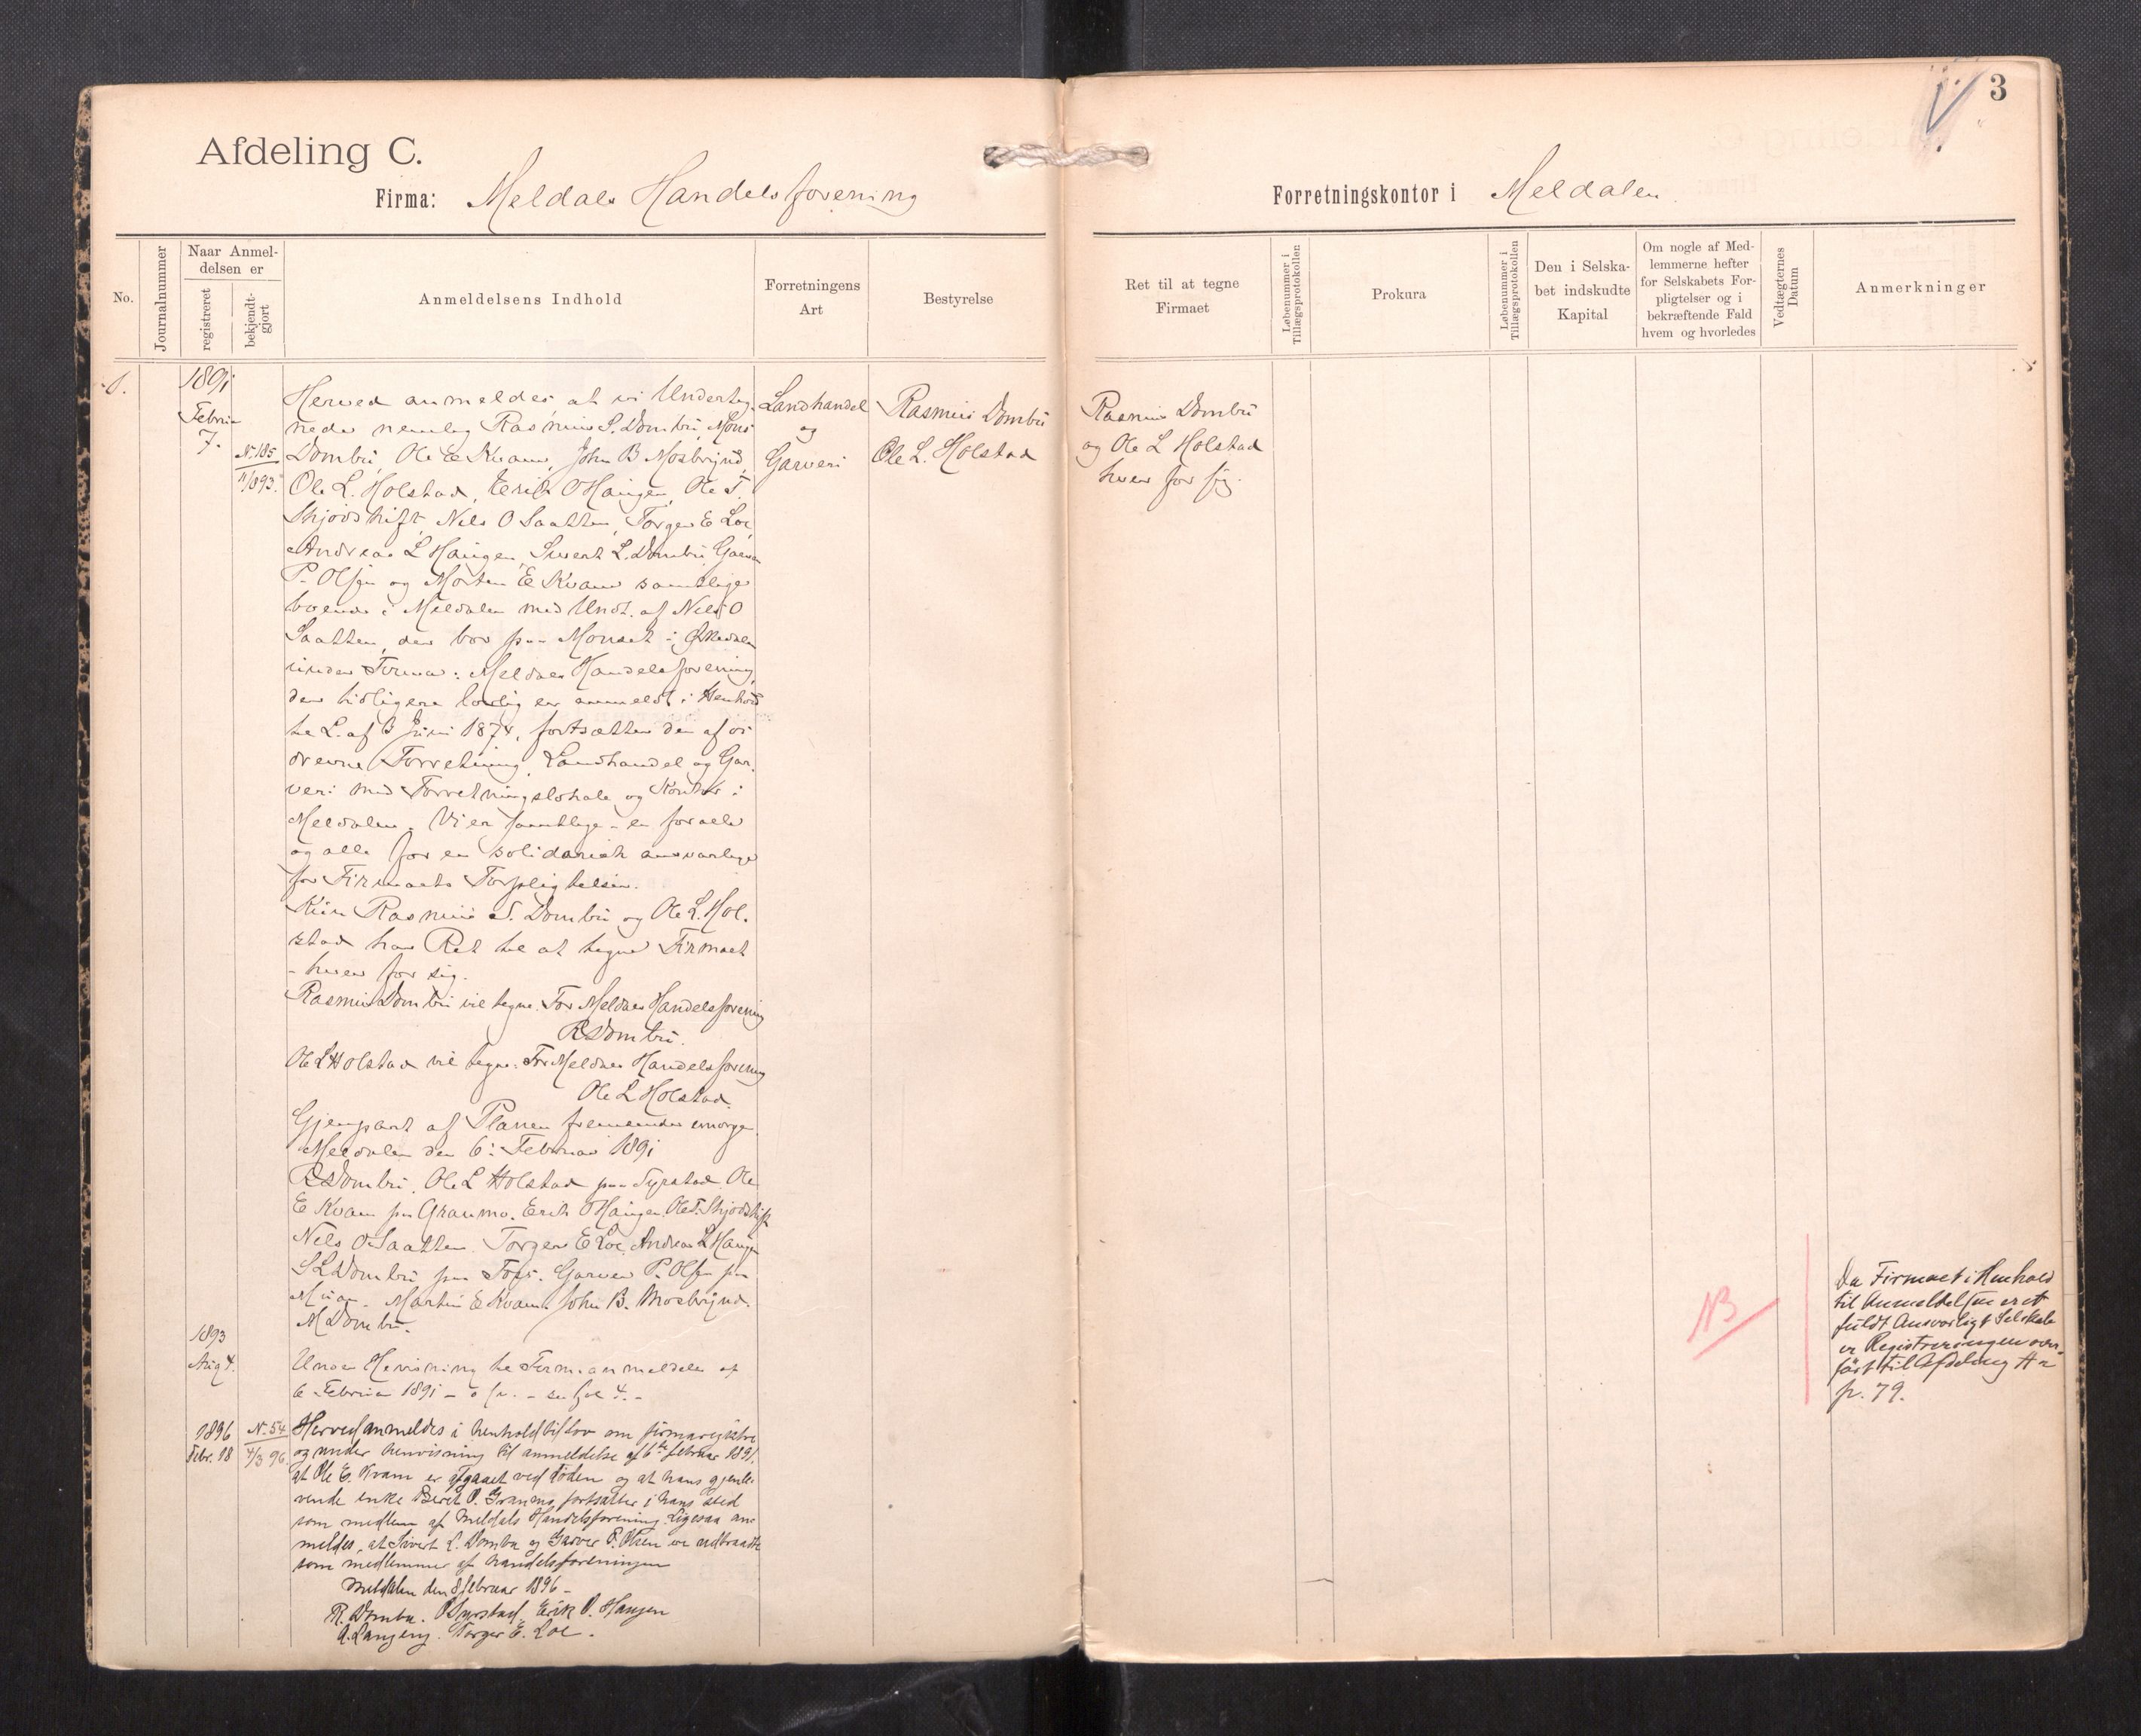 3
Afdeling C.
Firma: Meldals Handelsforening
Forretningskontor i Meldalen
No.
Journalnummer
Naar Anmel-
delsen er
registreret
bekjendt-
gjort
Anmeldelsens Indhold
Forretningens
Art
Bestyrelse
Ret til at tegne
Firmaet
Løbenummer i
Tillægsprotokollen
Prokura
Løbenummer i
Tillægsprotokollen
Den i Selska-
bet indskudte
Kapital
Om nogle af Med-
lemmerne hefter
for Selskabets For-
pligtelser og i
bekræftende Fald
hvem og hvorledes
Vedtægternes
Datum
Anmerkninger
1.
1891
Februar
7.
No 185
1893.
Herved anmeldes, at vi Underteg-
nede nemlig Rasmus S. Dombu, Mons
Dombu, Ole E Kvam, John B Mosbrynd,
Ole L. Holstad, Erik O Haugen, Ole T.
Skjødskift, Nils O Saatten, Torger E Loe,
Andreas L Haugen, Sivert L. Dombu, Garver
P. Olsen og Morten E Kvam samtlige
boende i Meldalen med Undt. af Nils O
Saatten, der bor paa Monset i Ørkedalen
under Firma: Meldals Handelsforening,
der tidligere lovlig er anmeldt i Henhold
til L. af 3 Juni 1874, fortsætter den af os
drevne Forretning, Landhandel og Gar-
veri med Forretningslokale og Kontor i
Meldalen. Vi er samtlige - en for alle
og alle for en solidarisk ansvarlige
for Firmaets Forpligtelser.
Kun Rasmus S. Dombu og Ole L. Hol-
stad har Ret til at tegne Firmaet
- hver for sig.
Rasmus Dombu vil tegne: For Meldals Handelsforening
RSDombu.
Ole L Holstad vil tegne: For Meldals Handelsforening
Ole L Holstad.
Gjenpart af Planen
Meldalen den 6. Februar 1891
RSDombu, Ole L Holstad paa Syrstad. Ole
E Kvam paa Granmo. Erik O Haugen. Ole T. Skjødskift
Nils O Saatten. Torger E Loe, Andreas L Haugen
S L Dombu paa. Garver P. Olsen paa
Muan. Martin E Kvam. John B. Mosbrynd.
M Dombu.
Landhandel
og
Garveri
Rasmus Dombu
Ole L. Holstad
Rasmus Dombu
og Ole L Holstad
hver for sig.
1893
Aug 4.
Under Henvisning til Firmaanmeldelse af
6 Februar 1891 - se fol 4. -
1896
Febr. 18
No 54
4/3 96.
Herved anmeldes i henhold til lov om firmaregistre
og under henvisning til anmeldelse af 6te februar 1891,
at Ole E. Kvam er afgaaet ved døden og at hans gjenle-
vende enke Berit O. Granmo fortsætter i hans sted
som medlem af Meldals Handelsforening. Ligesaa an-
meldes, at Sivert L. Dombu og Garver P. Olsen er udtraadt
som medlemmer af handelsforeningen
Meldalen den 8 februar 1896 -
R. Dombu. O Syrstad. Erik O. Haugen
A. Langeng. Torger E. Loe.
NB
Da Firmaet i Henhold
til Anmeldelsen er et
fuldt Ansvarligt Selskab
er Registreringen over-
ført til Afdeling A
p. 79.